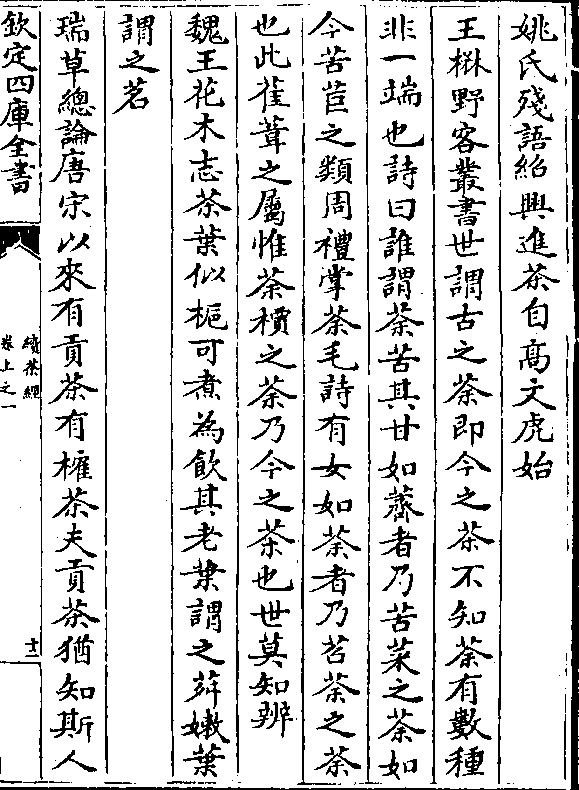 姚氏殘語紹興進茶自髙文虎始
王楙野客叢書世謂古之荼即今之茶不知荼有數種
非一端也詩曰誰謂荼苦其甘如薺者乃苦菜之荼如
今苦苣之類周禮掌荼毛詩有女如荼者乃苕荼之荼
也此萑葦之屬惟荼檟之荼乃今之茶也世莫知辨
魏王花木志茶葉似梔可煮為飲其老葉謂之荈嫩葉
謂之茗
瑞草總論唐宋以來有貢茶有榷茶夫貢茶猶知斯人
欽定四庫全書
續茶經
卷上之一
十二